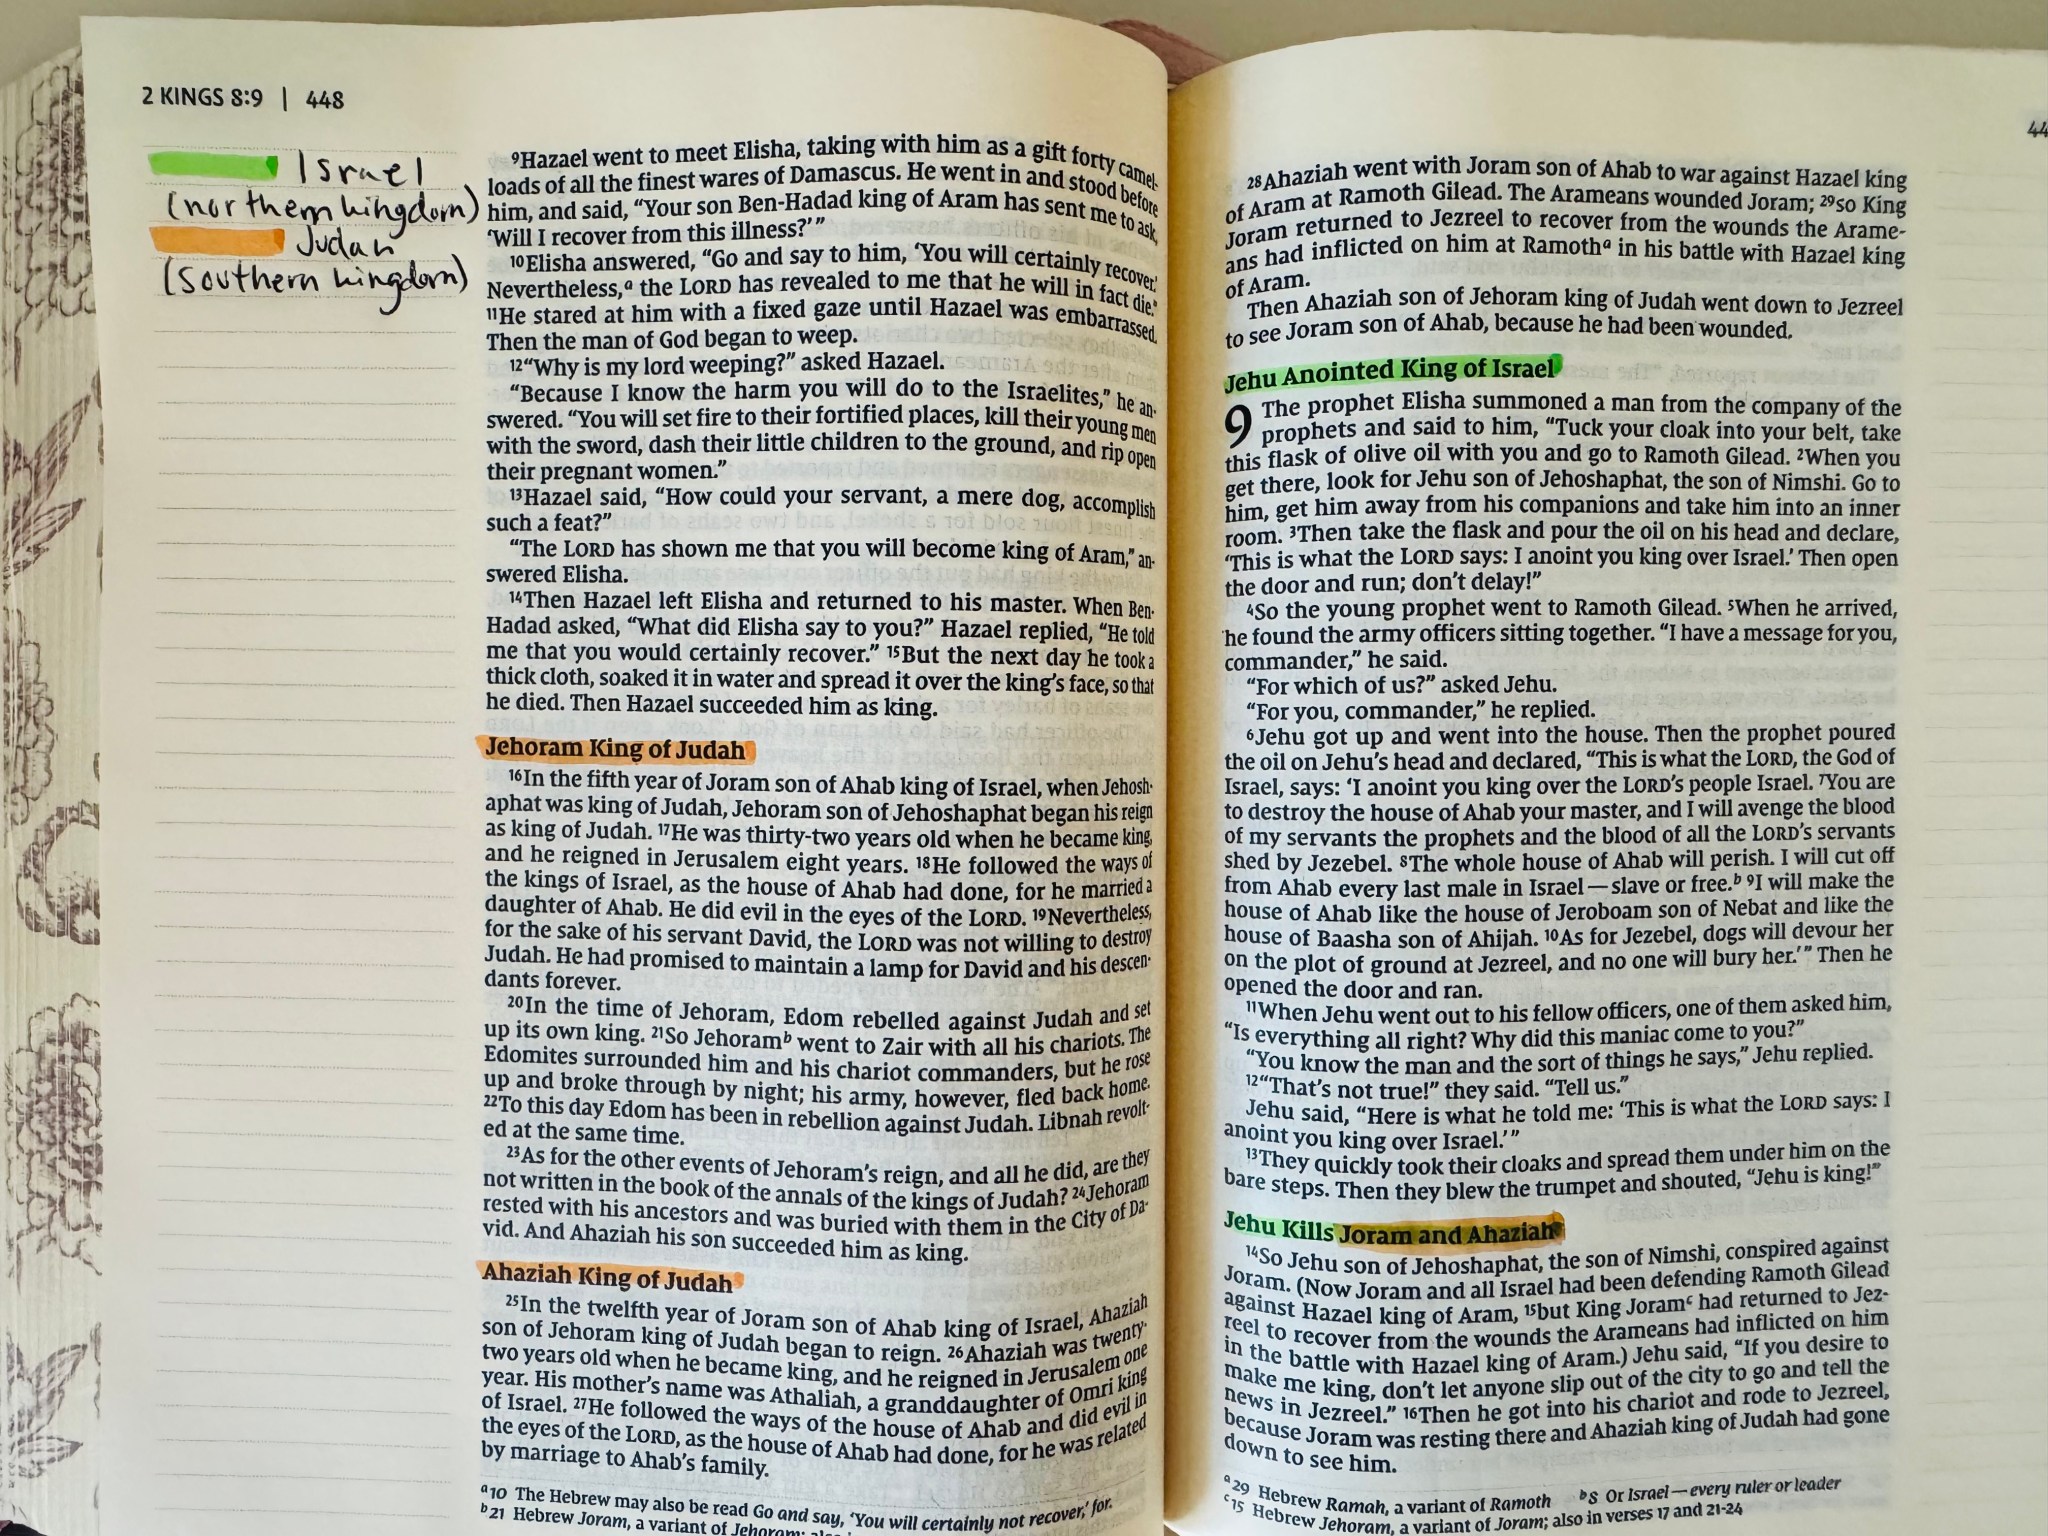 2 KINGS 8:9 | 448
Israel
(northern kingdom)
Judah
(southern kingdom)
⁹Hazael went to meet Elisha, taking with him as a gift forty camel-
loads of all the finest wares of Damascus. He went in and stood before
him, and said, “Your son Ben-Hadad king of Aram has sent me to ask,
‘Will I recover from this illness?’”
¹⁰Elisha answered, “Go and say to him, ‘You will certainly recover.’
Nevertheless,ᵃ the LORD has revealed to me that he will in fact die.”
¹¹He stared at him with a fixed gaze until Hazael was embarrassed.
Then the man of God began to weep.
¹²“Why is my lord weeping?” asked Hazael.
“Because I know the harm you will do to the Israelites,” he an-
swered. “You will set fire to their fortified places, kill their young men
with the sword, dash their little children to the ground, and rip open
their pregnant women.”
¹³Hazael said, “How could your servant, a mere dog, accomplish
such a feat?”
“The LORD has shown me that you will become king of Aram,” an-
swered Elisha.
¹⁴Then Hazael left Elisha and returned to his master. When Ben-
Hadad asked, “What did Elisha say to you?” Hazael replied, “He told
me that you would certainly recover.” ¹⁵But the next day he took a
thick cloth, soaked it in water and spread it over the king’s face, so that
he died. Then Hazael succeeded him as king.
Jehoram King of Judah
¹⁶In the fifth year of Joram son of Ahab king of Israel, when Jehosh-
aphat was king of Judah, Jehoram son of Jehoshaphat began his reign
as king of Judah. ¹⁷He was thirty-two years old when he became king,
and he reigned in Jerusalem eight years. ¹⁸He followed the ways of
the kings of Israel, as the house of Ahab had done, for he married a
daughter of Ahab. He did evil in the eyes of the LORD. ¹⁹Nevertheless,
for the sake of his servant David, the LORD was not willing to destroy
Judah. He had promised to maintain a lamp for David and his descen-
dants forever.
²⁰In the time of Jehoram, Edom rebelled against Judah and set
up its own king. ²¹So Jehoramᵇ went to Zair with all his chariots. The
Edomites surrounded him and his chariot commanders, but he rose
up and broke through by night; his army, however, fled back home.
²²To this day Edom has been in rebellion against Judah. Libnah revolt-
ed at the same time.
²³As for the other events of Jehoram’s reign, and all he did, are they
not written in the book of the annals of the kings of Judah? ²⁴Jehoram
rested with his ancestors and was buried with them in the City of Da-
vid. And Ahaziah his son succeeded him as king.
Ahaziah King of Judah
²⁵In the twelfth year of Joram son of Ahab king of Israel, Ahaziah
son of Jehoram king of Judah began to reign. ²⁶Ahaziah was twenty-
two years old when he became king, and he reigned in Jerusalem one
year. His mother’s name was Athaliah, a granddaughter of Omri king
of Israel. ²⁷He followed the ways of the house of Ahab and did evil in
the eyes of the LORD, as the house of Ahab had done, for he was related
by marriage to Ahab’s family.
ᵃ10 The Hebrew may also be read Go and say, ‘You will certainly not recover,’ for.
ᵇ21 Hebrew Joram, a variant of Jehoram;
44
²⁸Ahaziah went with Joram son of Ahab to war against Hazael king
of Aram at Ramoth Gilead. The Arameans wounded Joram; ²⁹so King
Joram returned to Jezreel to recover from the wounds the Arame-
ans had inflicted on him at Ramothᵃ in his battle with Hazael king
of Aram.
Then Ahaziah son of Jehoram king of Judah went down to Jezreel
to see Joram son of Ahab, because he had been wounded.
Jehu Anointed King of Israel
9 The prophet Elisha summoned a man from the company of the
prophets and said to him, “Tuck your cloak into your belt, take
this flask of olive oil with you and go to Ramoth Gilead. ²When you
get there, look for Jehu son of Jehoshaphat, the son of Nimshi. Go to
him, get him away from his companions and take him into an inner
room. ³Then take the flask and pour the oil on his head and declare,
‘This is what the LORD says: I anoint you king over Israel.’ Then open
the door and run; don’t delay!”
⁴So the young prophet went to Ramoth Gilead. ⁵When he arrived,
he found the army officers sitting together. “I have a message for you,
commander,” he said.
“For which of us?” asked Jehu.
“For you, commander,” he replied.
⁶Jehu got up and went into the house. Then the prophet poured
the oil on Jehu’s head and declared, “This is what the LORD, the God of
Israel, says: ‘I anoint you king over the LORD’s people Israel. ⁷You are
to destroy the house of Ahab your master, and I will avenge the blood
of my servants the prophets and the blood of all the LORD’s servants
shed by Jezebel. ⁸The whole house of Ahab will perish. I will cut off
from Ahab every last male in Israel—slave or free.ᵇ ⁹I will make the
house of Ahab like the house of Jeroboam son of Nebat and like the
house of Baasha son of Ahijah. ¹⁰As for Jezebel, dogs will devour her
on the plot of ground at Jezreel, and no one will bury her.’” Then he
opened the door and ran.
¹¹When Jehu went out to his fellow officers, one of them asked him,
“Is everything all right? Why did this maniac come to you?”
“You know the man and the sort of things he says,” Jehu replied.
¹²“That’s not true!” they said. “Tell us.”
Jehu said, “Here is what he told me: ‘This is what the LORD says: I
anoint you king over Israel.’”
¹³They quickly took their cloaks and spread them under him on the
bare steps. Then they blew the trumpet and shouted, “Jehu is king!”
Jehu Kills Joram and Ahaziah
¹⁴So Jehu son of Jehoshaphat, the son of Nimshi, conspired against
Joram. (Now Joram and all Israel had been defending Ramoth Gilead
against Hazael king of Aram, ¹⁵but King Joramᶜ had returned to Jez-
reel to recover from the wounds the Arameans had inflicted on him
in the battle with Hazael king of Aram.) Jehu said, “If you desire to
make me king, don’t let anyone slip out of the city to go and tell the
news in Jezreel.” ¹⁶Then he got into his chariot and rode to Jezreel,
because Joram was resting there and Ahaziah king of Judah had gone
down to see him.
ᵃ29 Hebrew Ramah, a variant of Ramoth ᵇ8 Or Israel—every ruler or leader
ᶜ15 Hebrew Jehoram, a variant of Joram; also in verses 17 and 21-24